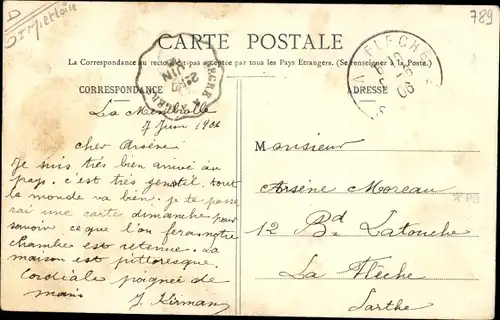 789
D
Impertoire
CARTE POSTALE
La Correspondance au recto n'est pas acceptée par tous les Pays Etrangers. (Se renseigner à la Poste.)
CORRESPONDANCE
ADRESSE
LA FLECHE
SEGRÉ A ANGERS
2e
JUIN
La Membrolle
7 Juin 1906
cher Arsène
Je suis très bien arrivé au
pays. c'est très gentil. tout
le monde va bien. je te passe
rai une carte dimanche pour
savoir ce que l'on fera. notre
chambre est retenue. La
maison est pittoresque.
Cordiale poignée de
mains
J. Kirman
Monsieur
Arsène Moreau
12 Bd Latouche
La Flèche
Sarthe